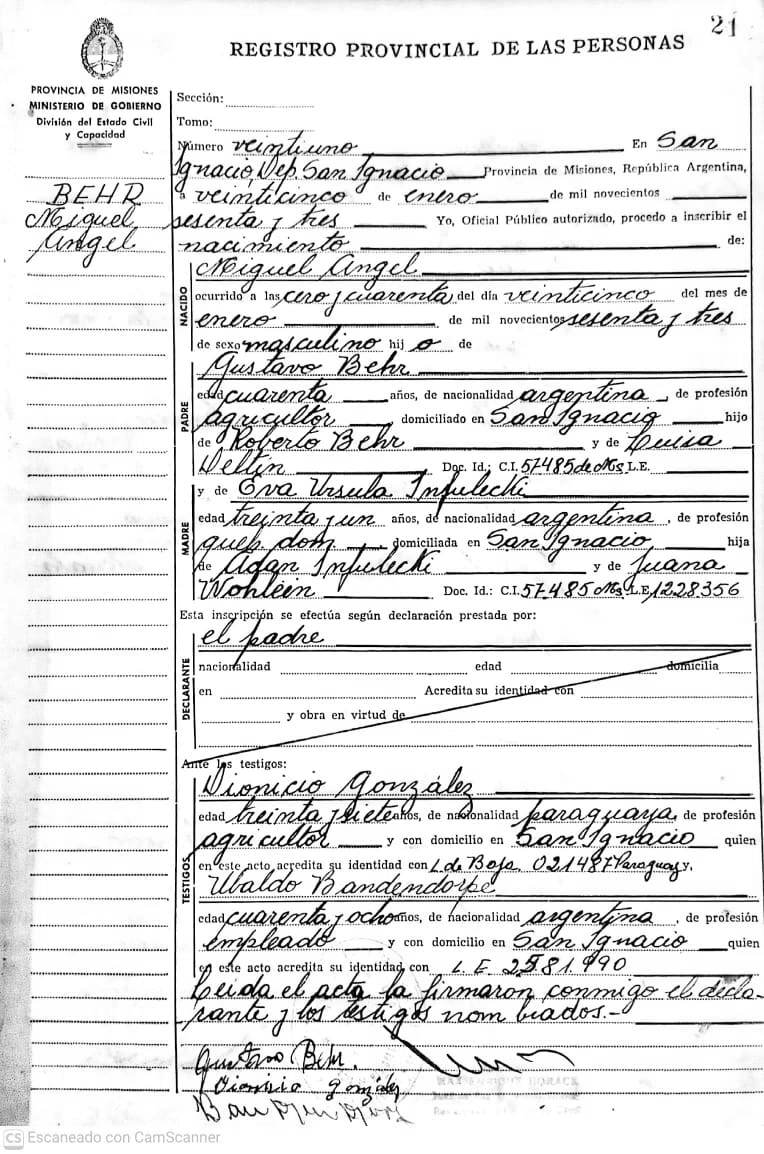 21
REGISTRO PROVINCIAL DE LAS PERSONAS
PROVINCIA DE MISIONES
MINISTERIO DE GOBIERNO
División del Estado Civil
y Capacidad
BEHR
Miguel
Angel
Sección:
Tomo:
Número veintiuno En San
Ignacio, Dep. San Ignacio Provincia de Misiones, República Argentina,
a veinticinco de enero de mil novecientos
sesenta y tres Yo, Oficial Público autorizado, procedo a inscribir el
nacimiento de:
NACIDO
Miguel Angel
ocurrido a las cero y cuarenta del día veinticinco del mes de
enero de mil novecientos sesenta y tres
de sexo masculino hij o de
PADRE
Gustavo Behr
edad cuarenta años, de nacionalidad argentina, de profesión
agricultor domiciliado en San Ignacio hijo
de Roberto Behr y de Luisa
Deltin Doc. Id.: C.I. 57485 de Ms. L.E.
MADRE
y de Eva Ursula Infulecki
edad treinta y un años, de nacionalidad argentina, de profesión
queh. dom. domiciliada en San Ignacio hija
de Adan Infulecki y de Juana
Wohlein Doc. Id.: C.I. 57.485 Ms. L.E. 1228356
Esta inscripción se efectúa según declaración prestada por:
DECLARANTE
el padre
nacionalidad edad domicilia
en Acredita su identidad con
y obra en virtud de
Ante los testigos:
TESTIGOS
Dionicio González
edad treinta y siete años, de nacionalidad paraguaya, de profesión
agricultor y con domicilio en San Ignacio quien
en este acto acredita su identidad con L. de Baja. 021487 Paraguay y,
Ubaldo Bandendorpe
edad cuarenta y ocho años, de nacionalidad argentina, de profesión
empleado y con domicilio en San Ignacio quien
en este acto acredita su identidad con L.E. 2581.990
Leida el acta la firmaron conmigo el decla-
rante y los testigos nom brados.-
Gustavo Behr.
Dionisio González
CS Escaneado con CamScanner